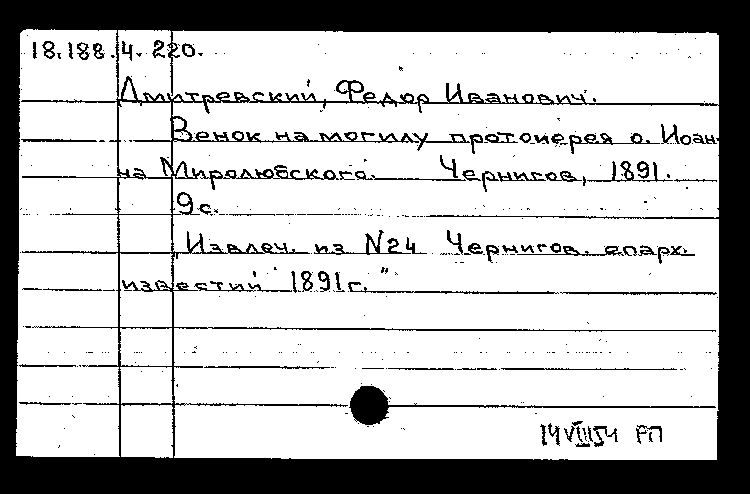 18.188.4.220.
Дмитревский, Федор Иванович.
Венок на могилу протоиерея о. Иоан-
на Миролюбского. Чернигов, 1891.
9с.
"Извлеч. из N24 Чернигов. епарх.
известий 1891г."
14 VIII 54 РП